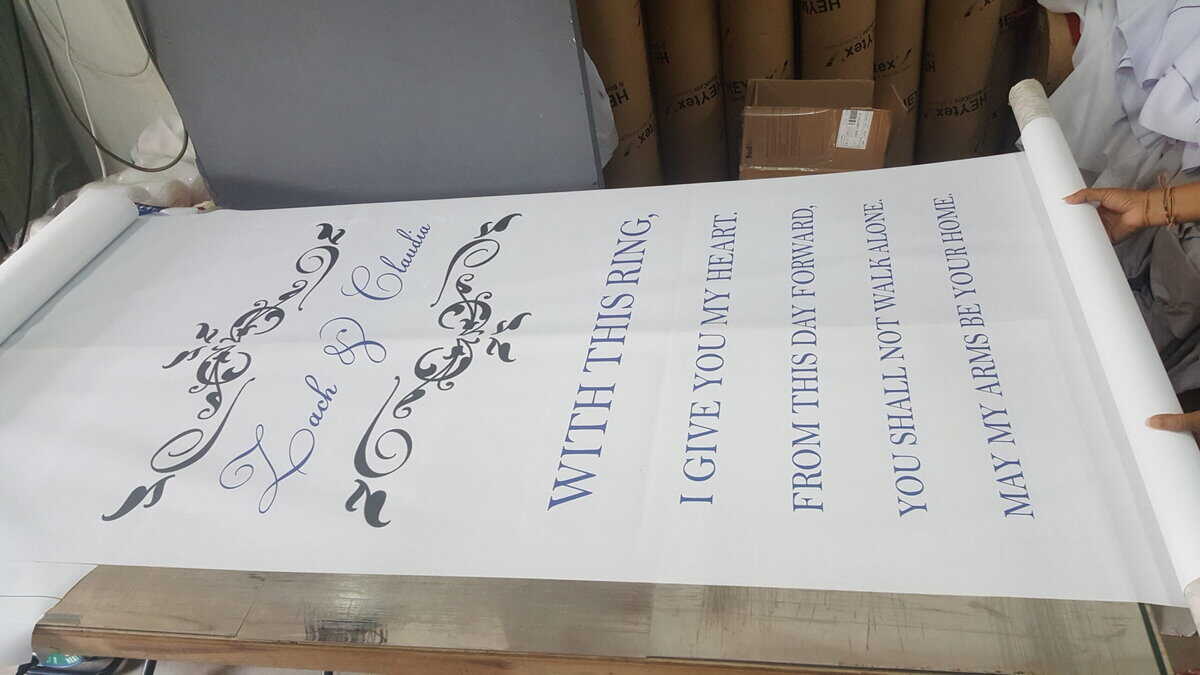 Zach & Claudia
WITH THIS RING,
I GIVE YOU MY HEART.
FROM THIS DAY FORWARD,
YOU SHALL NOT WALK ALONE.
MAY MY ARMS BE YOUR HOME.
HEYtex
HEYtex
HEYtex
HEYtex